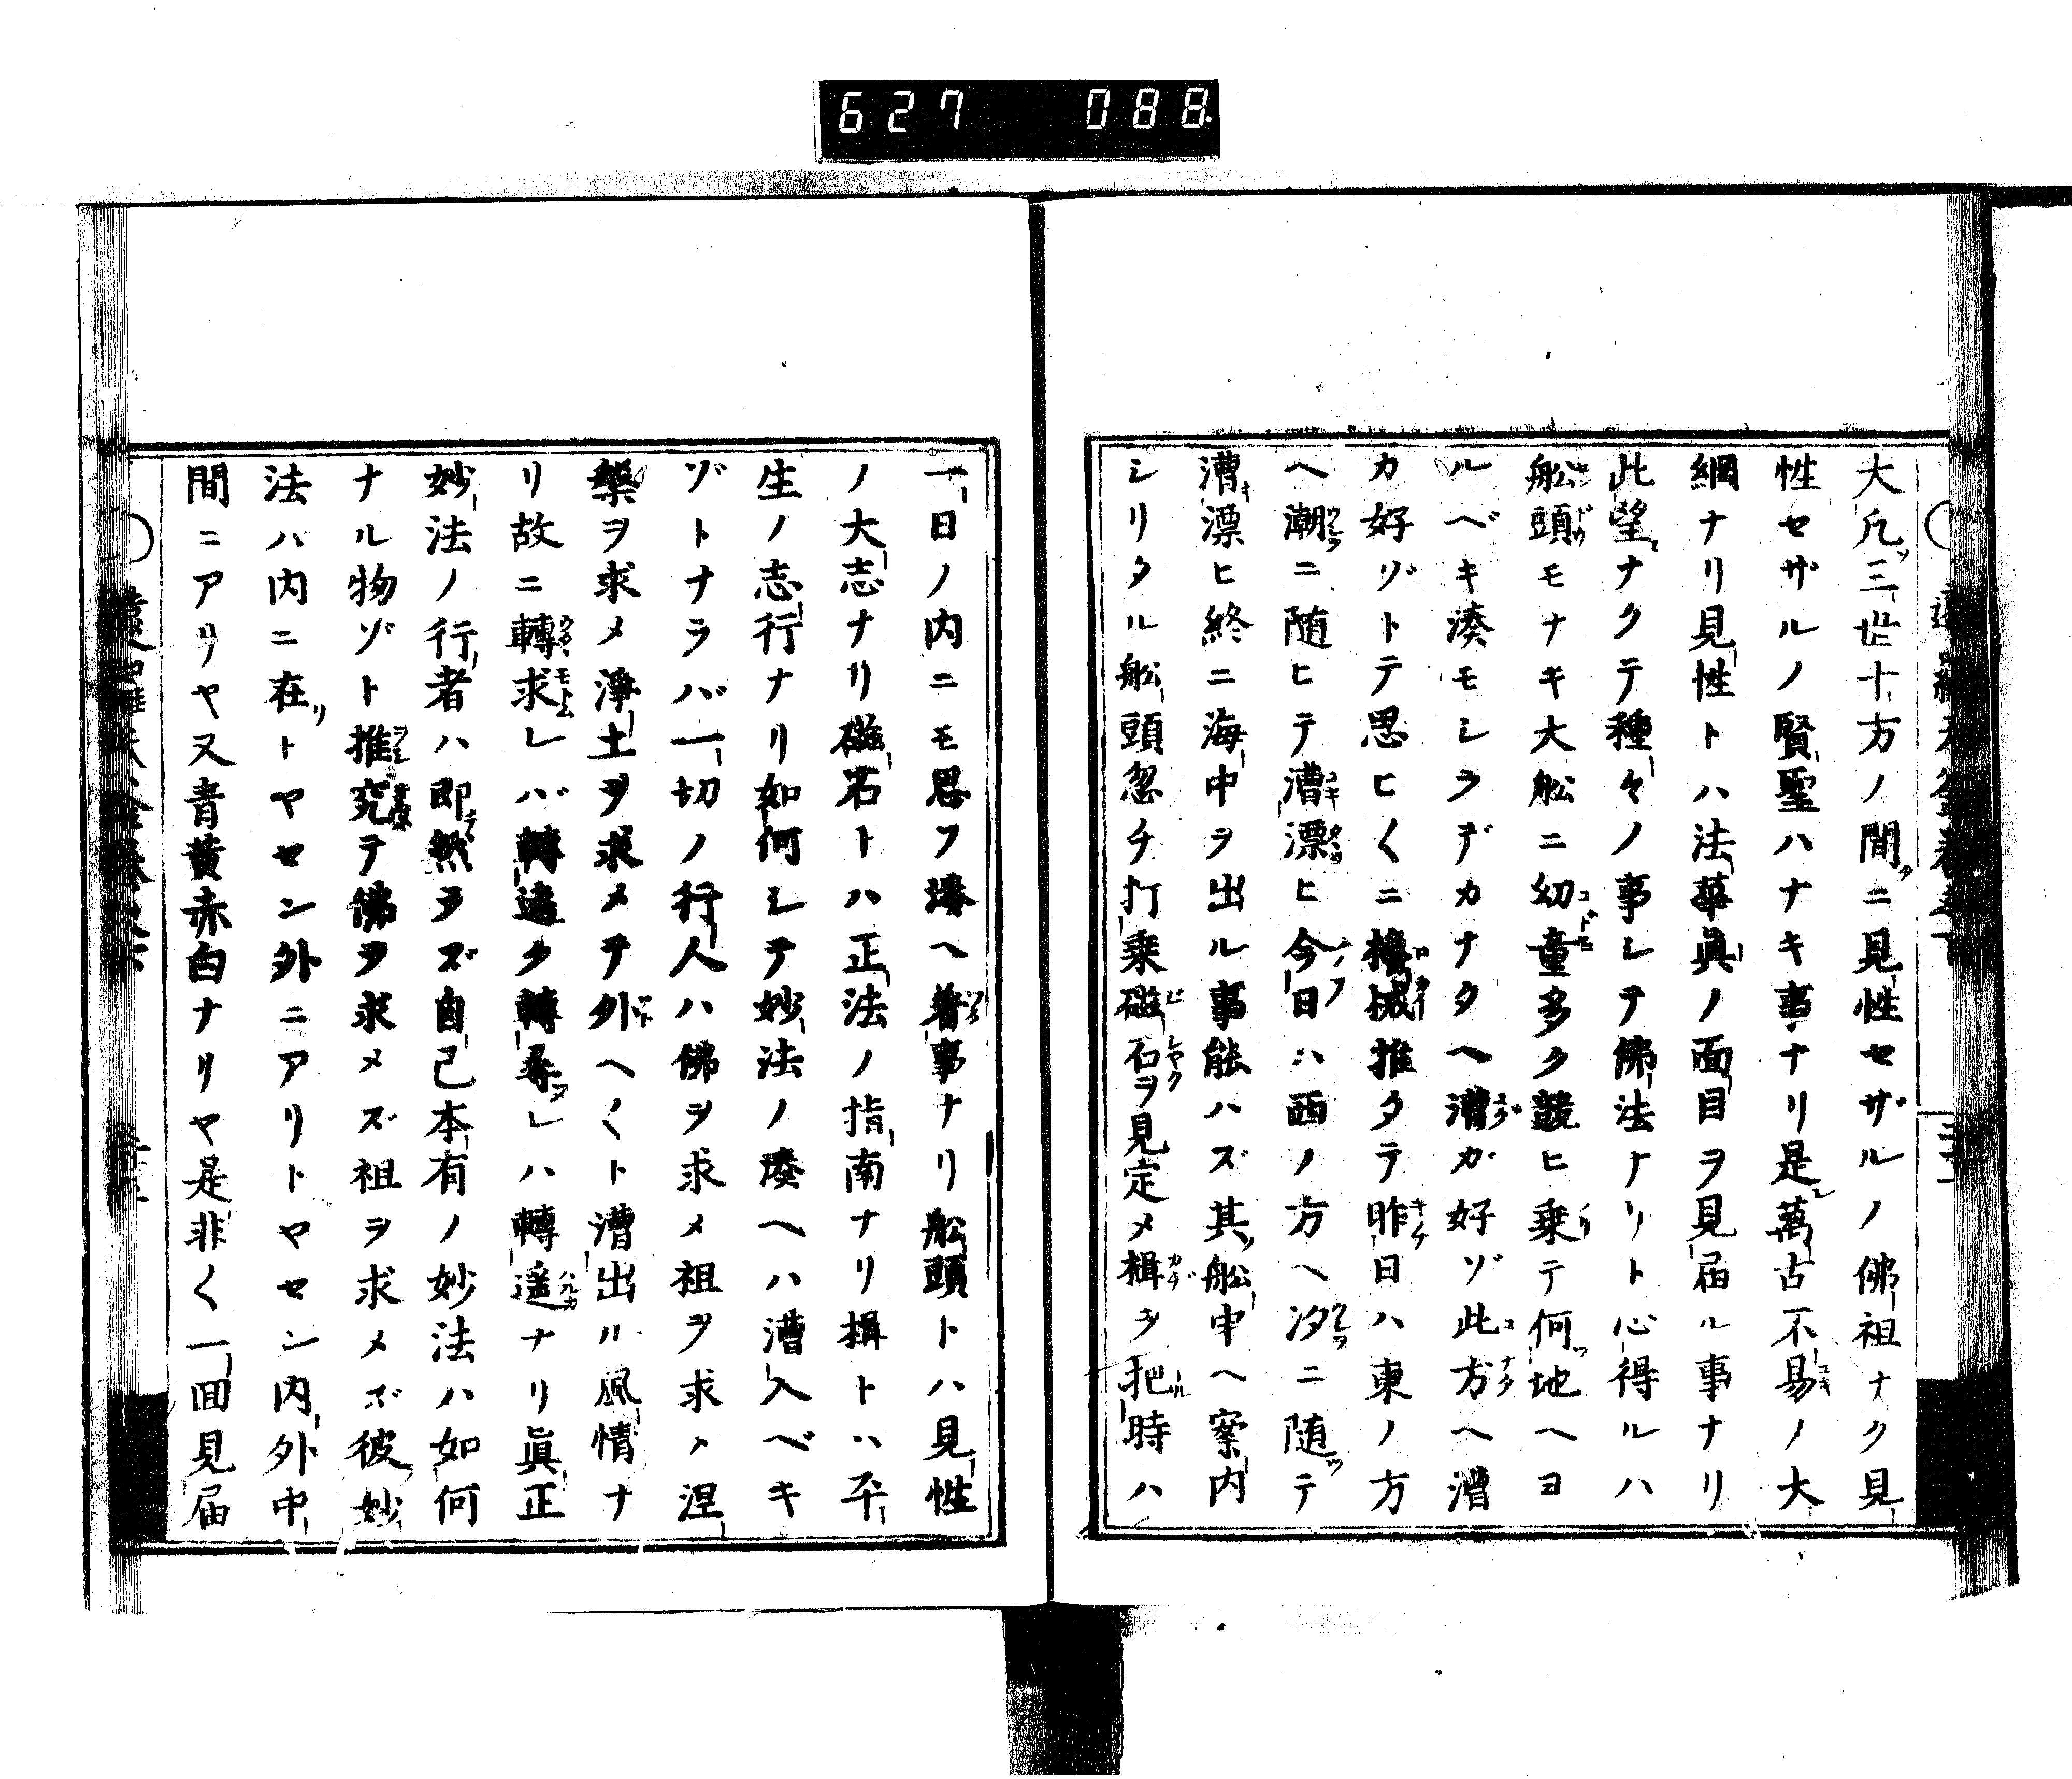 627 088.
大凡三世十方ノ間ニ見性セザルノ佛祖ナク見
性セザルノ賢聖ハナキ事ナリ是萬古不易ノ大
綱ナリ見性トハ法華眞ノ面目ヲ見届ル事ナリ
此望ナクテ種々ノ事シテ佛法ナリト心得ルハ
舩頭モナキ大舩ニ幼童多ク競ヒ乗テ何地ヘヨ
ルベキ湊モシラデカナタヘ漕ガ好ゾ此方ヘ漕
カ好ゾトテ思ヒ〱ニ櫓械推タテ昨日ハ東ノ方
ヘ潮ニ随ヒテ漕漂ヒ今日ハ西ノ方ヘ汐ニ随テ
漕漂ヒ終ニ海中ヲ出ル事能ハズ其舩中ヘ案内
シリタル舩頭忽チ打乗磁石ヲ見定メ楫ヲ把時ハ
一日ノ内ニモ思フ湊ヘ着事ナリ舩頭トハ見性
ノ大志ナリ磁石トハ正法ノ指南ナリ楫トハ平
生ノ志行ナリ如何シテ妙法ノ湊ヘハ漕入ベキ
ゾトナラバ一切ノ行人ハ佛ヲ求メ祖ヲ求メ涅
槃ヲ求メ淨土ヲ求メテ外ヘ〱ト漕出ル風情ナ
リ故ニ轉求レバ轉遠ク轉尋レハ轉遥ナリ眞正
妙法ノ行者ハ即然ラズ自己本有ノ妙法ハ如何
ナル物ゾト推究テ佛ヲ求メズ祖ヲ求メズ彼妙
法ハ内ニ在トヤセン外ニアリトヤセン内外中
間ニアリヤ又青黄赤白ナリヤ是非〱一回見届